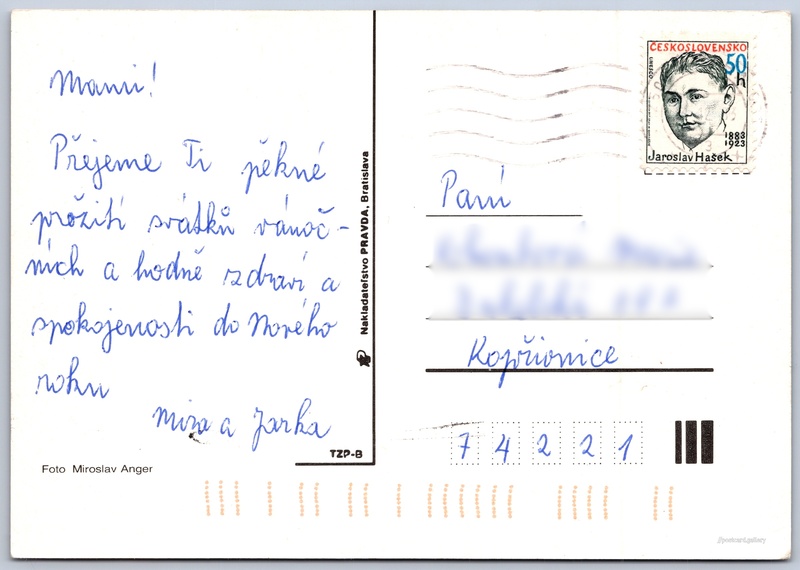 Mami!
Přejeme Ti pěkné
prožití svátků vánoč-
ních a hodně zdraví a
spokojenosti do Nového
roku
Mira a Jarka
Foto Miroslav Anger
TZP-B
Nakladateľstvo PRAVDA, Bratislava
ČESKOSLOVENSKO
50
h
1883
1923
Jaroslav Hašek
Paní
Kopřivnice
7 4 2 2 1